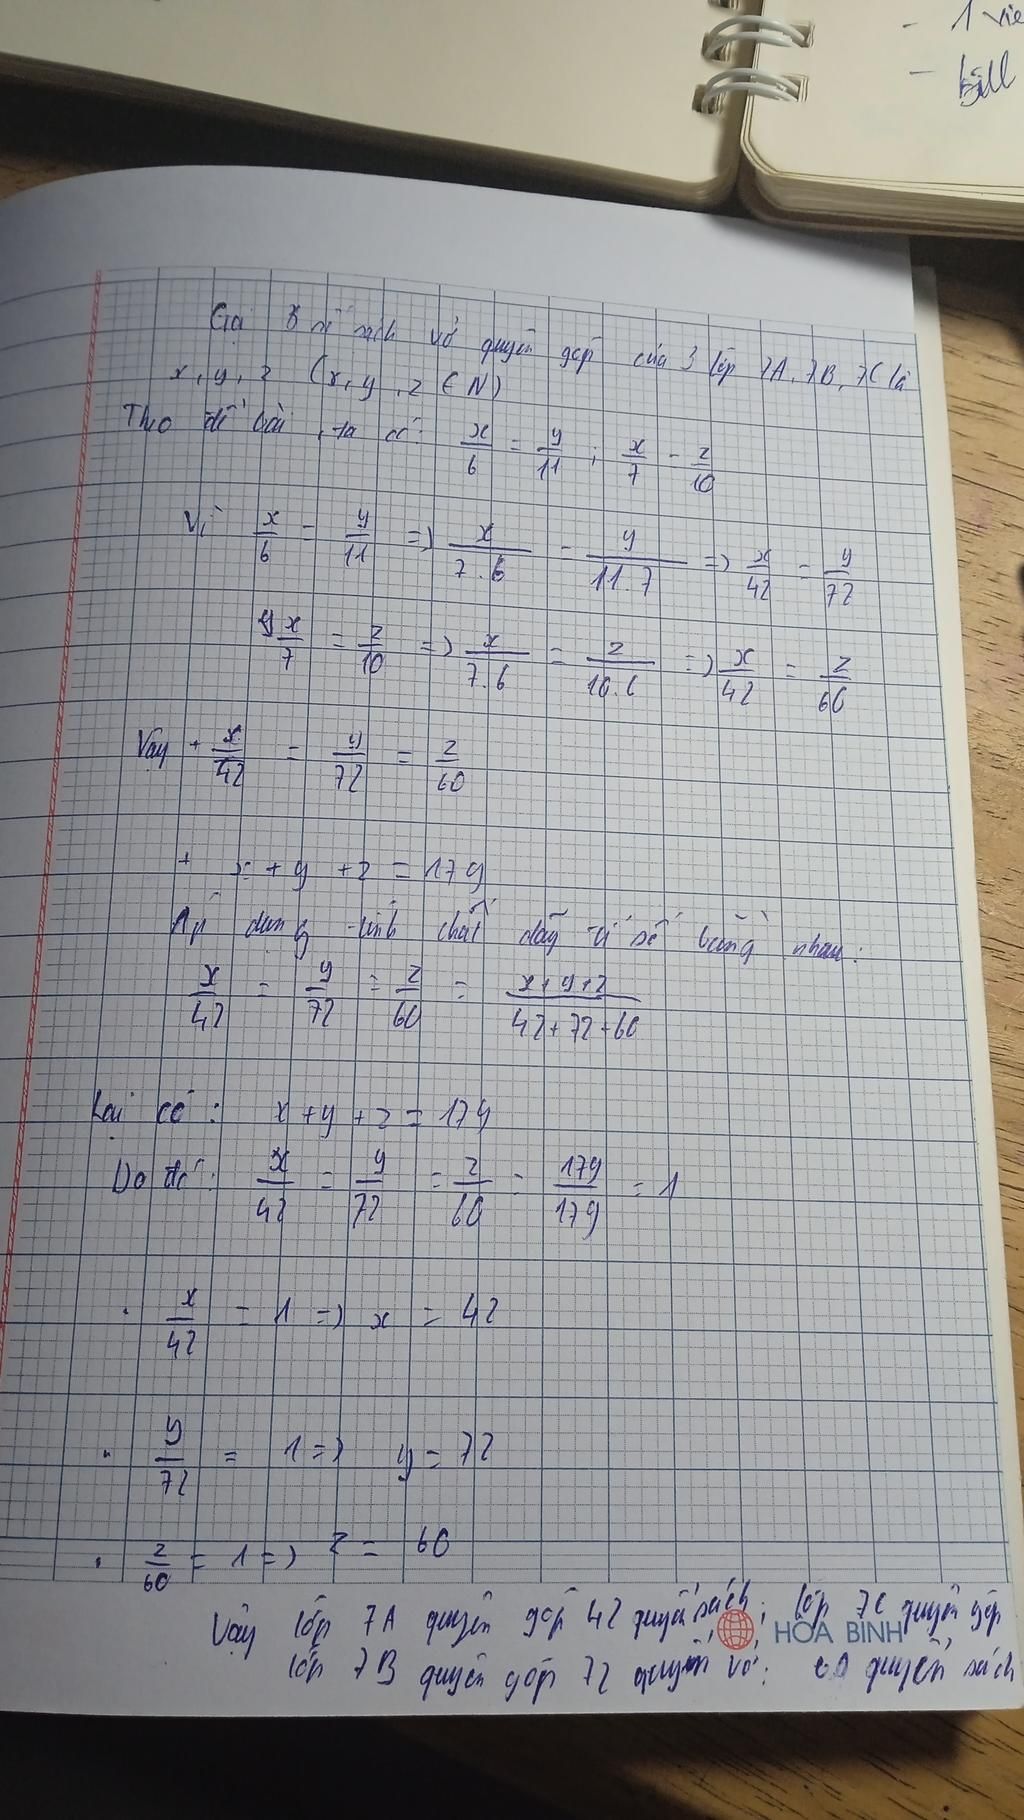 - 1 vie
- bill
Gọi 3 số sách vở quyên góp của 3 lớp 7A, 7B, 7C là
x, y, z (x, y, z ∈ N)
Theo đề bài, ta có: x/6 = y/11 ; x/7 = z/10
Vì x/6 = y/11 => x/7.6 = y/11.7 => x/42 = y/72
x/7 = z/10 => x/7.6 = z/10.6 => x/42 = z/60
Vậy + x/42 = y/72 = z/60
+ x + y + z = 179
Áp dụng tính chất dãy tỉ số bằng nhau:
x/42 = y/72 = z/60 = x+y+z/42+72+60
Lại có: x + y + z = 179
Do đó: x/42 = y/72 = z/60 = 179/179 = 1
. x/42 = 1 => x = 42
. y/72 = 1 => y = 72
. z/60 = 1 => z = 60
Vậy lớp 7A quyên góp 42 quyển sách; lớp 7C quyên góp
lớp 7B quyên góp 72 quyển vở; 60 quyển sách
HÒA BÌNH